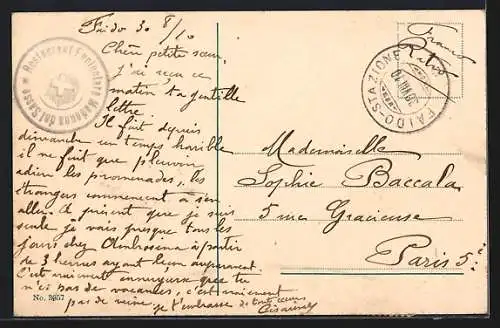 Faido 30 8/10
Chère petite sœur,
j'ai reçu ce
matin ta gentille
lettre.
Il fait depuis
dimanche un temps horrible
il ne fait que pleuvoir
adieu les promenades, les
étrangers commencent à s'en
aller. A présent que je suis
seule je vais presque tous les
jours chez Ambrosena à partir
de 3 heures ayant leçon auparavant.
C'est vraiment ennuyeux que tu
n'ai pas de vacances, c'est vraiment
pas de veine. je t'embrasse de tout cœur
No. 3957
Restaurant Funiculare Madonna del Sasso
Franco
Retro
FAIDO-STAZIONE
30 VIII 10
Mademoiselle
Sophie Baccala
5 rue Gracieuse
Paris 5e